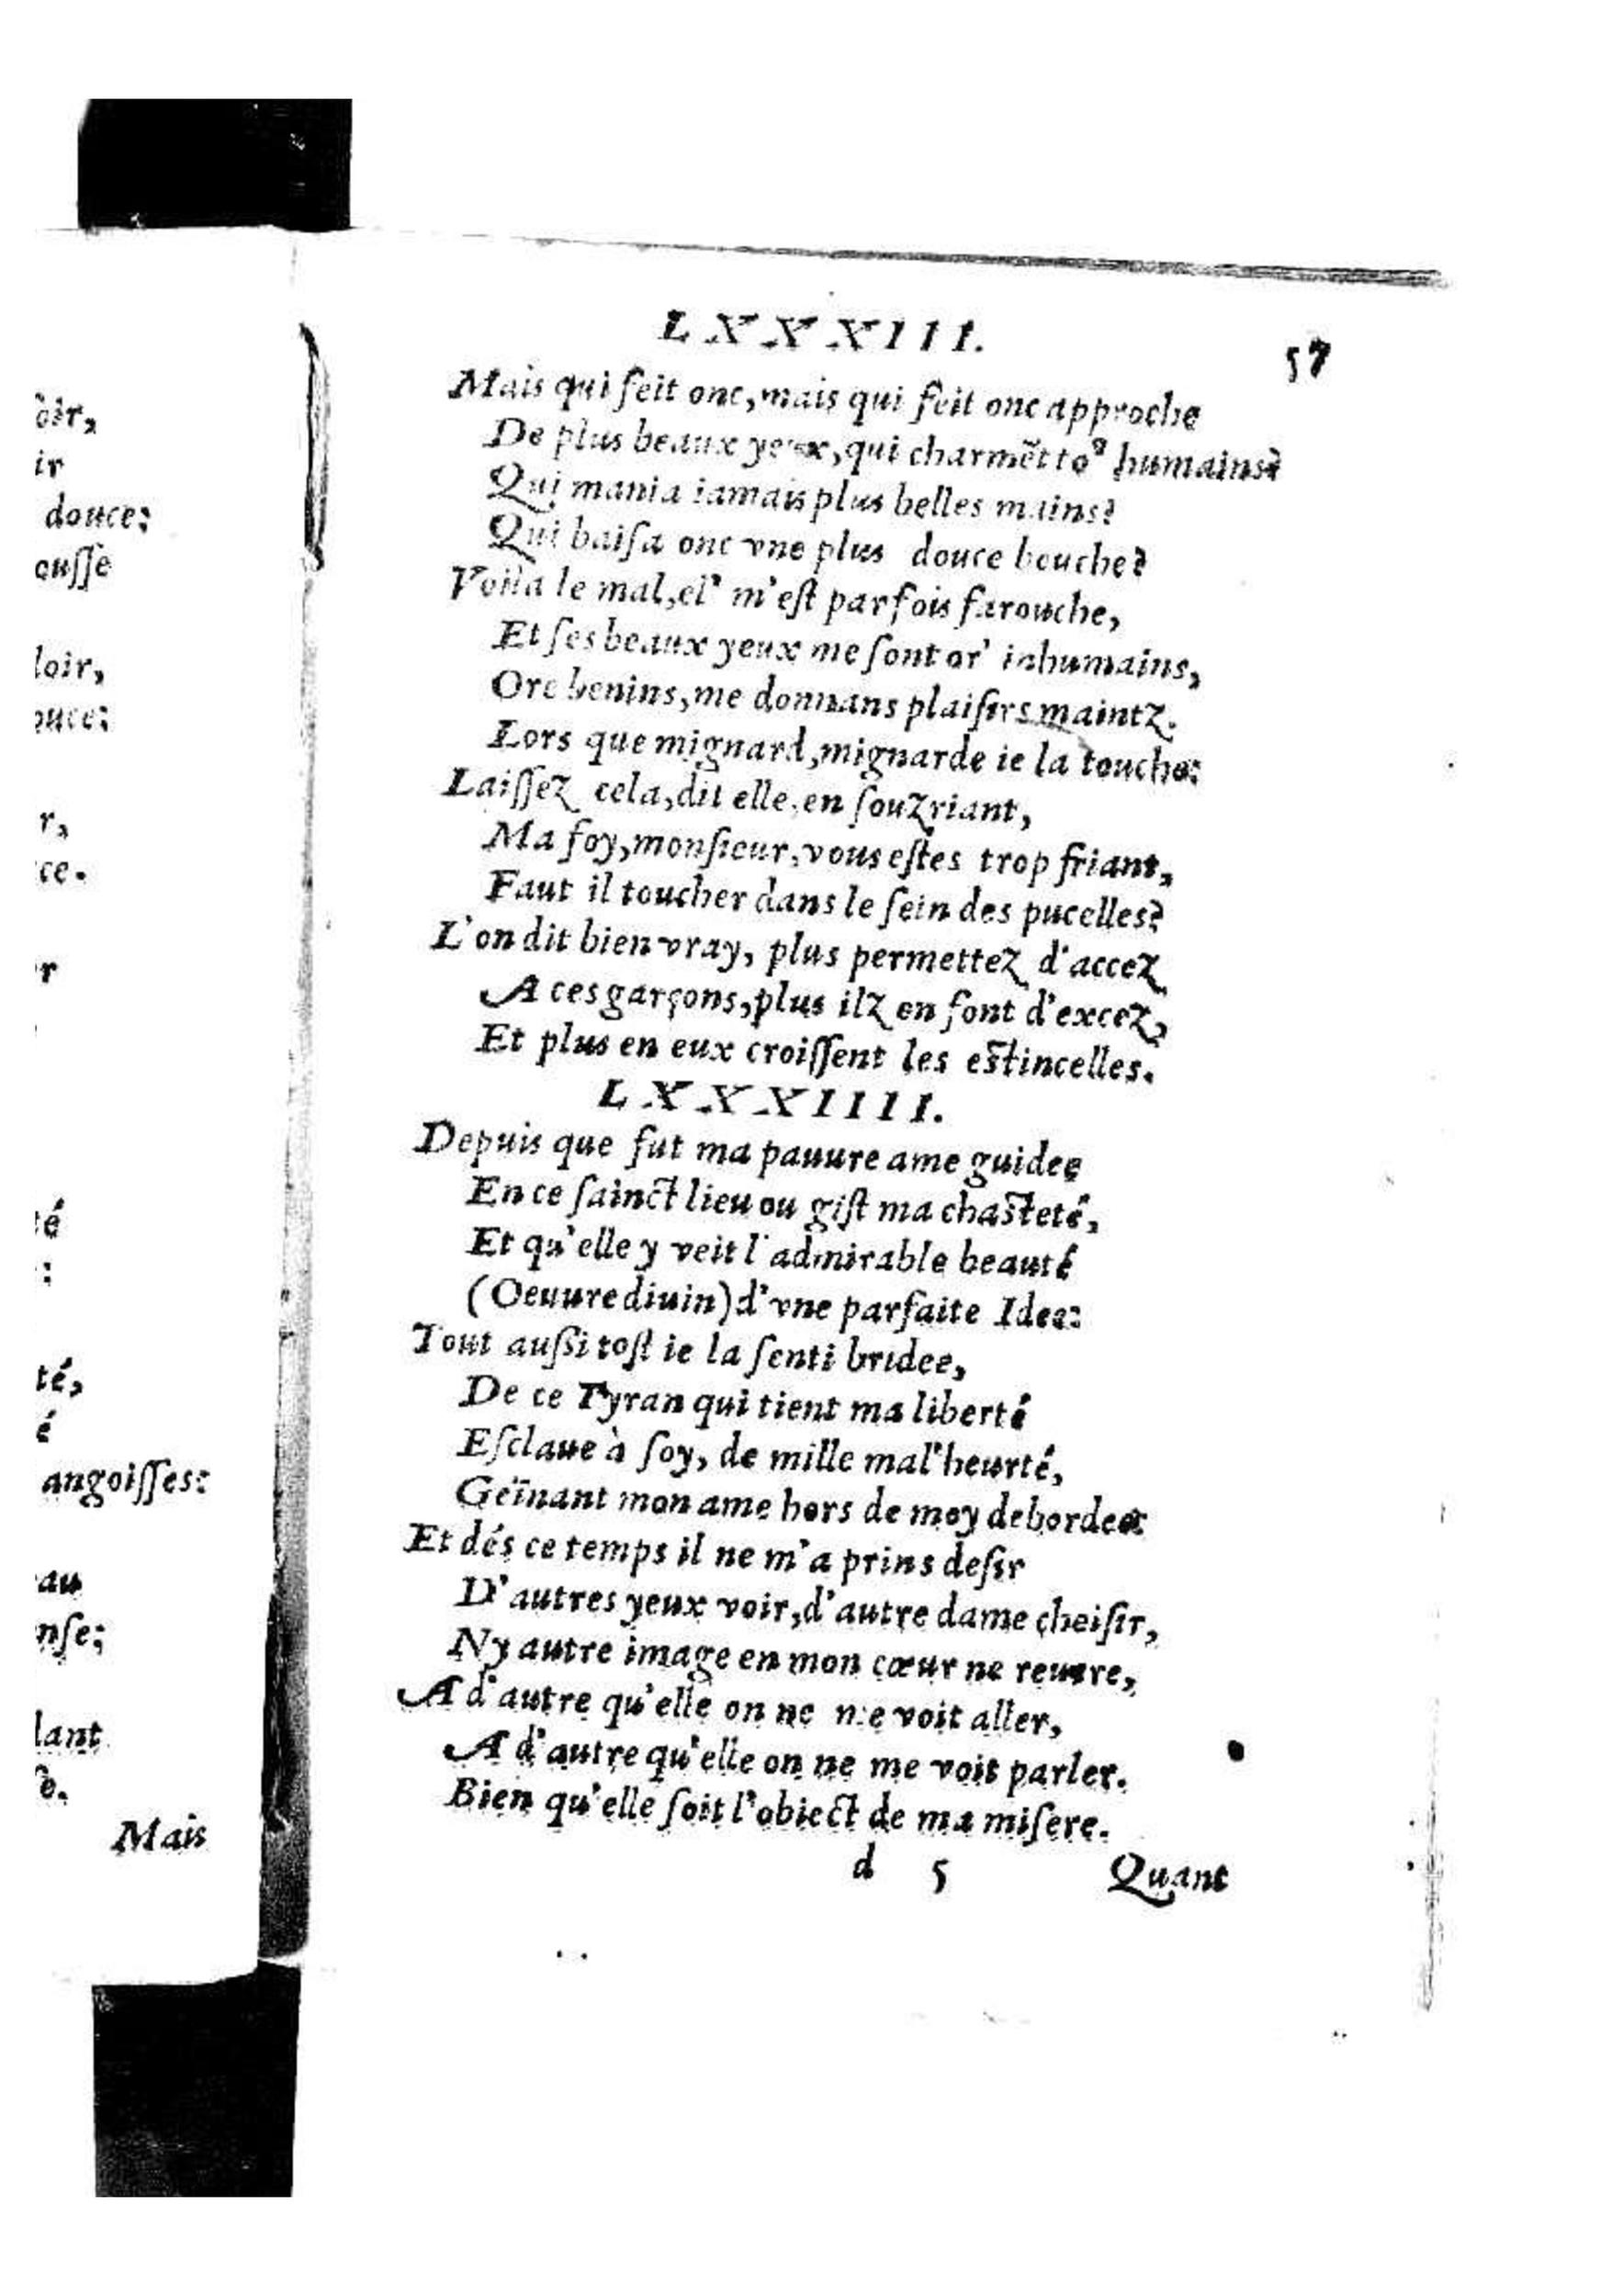 oir,
ir
douce:
ousse
loir,
ouce:
r,
ce.
r
té
:
té,
é
angoisses:
au
nse;
lant
se.
Mais
LXXXIII.
57
Mais qui feit onc, mais qui feit onc approche
De plus beaux yeux, qui charmẽt toꝰ humains?
Qui mania iamais plus belles mains?
Qui baisa onc vne plus douce bouche?
Voila le mal, el' m'est parfois farouche,
Et ses beaux yeux me sont or' inhumains,
Ore benins, me donnans plaisirs maintz.
Lors que mignard, mignarde ie la touche:
Laissez cela, dit elle, en souzriant,
Ma foy, monsieur, vous estes trop friant,
Faut il toucher dans le sein des pucelles?
L'on dit bien vray, plus permettez d'accez
A ces garçons, plus ilz en font d'excez,
Et plus en eux croissent les estincelles.
LXXXIIII.
Depuis que fut ma pauure ame guidee
En ce sainct lieu ou gist ma chasteté,
Et qu'elle y veit l'admirable beauté
(Oeuure diuin) d'vne parfaite Idea:
Tout aussi tost ie la senti bridee,
De ce Tyran qui tient ma liberté
Esclaue à soy, de mille mal'heurté,
Geïnant mon ame hors de moy debordee:
Et dés ce temps il ne m'a prins desir
D'autres yeux voir, d'autre dame choisir,
Ny autre image en mon cœur ne reuere,
A d'autre qu'elle on ne me voit aller,
A d'autre qu'elle on ne me voit parler.
Bien qu'elle soit l'obiect de ma misere.
d 5 Quant